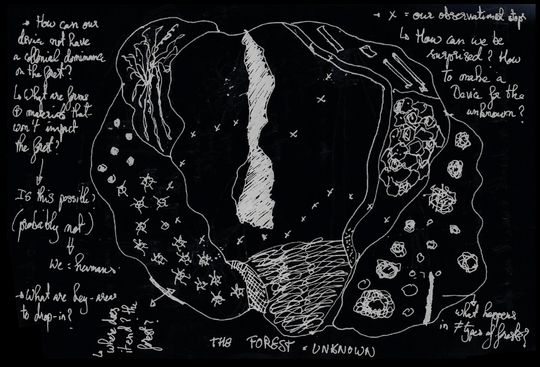 → How can our
device not have
a colonial dominance
on the forest?
↳ What are forms
⊕ materials that
won't impact
the forest?
Is this possible?
(probably not)
we = humans.
→ What are key-areas
to drop-in?
↳ where does
it end? the
forest?
THE FOREST = UNKNOWN
→ X = our observational stops
↳ How can we be
surprised? How
to make a
Device for the
unknown?
↳ what happens
in ≠ types of forests?